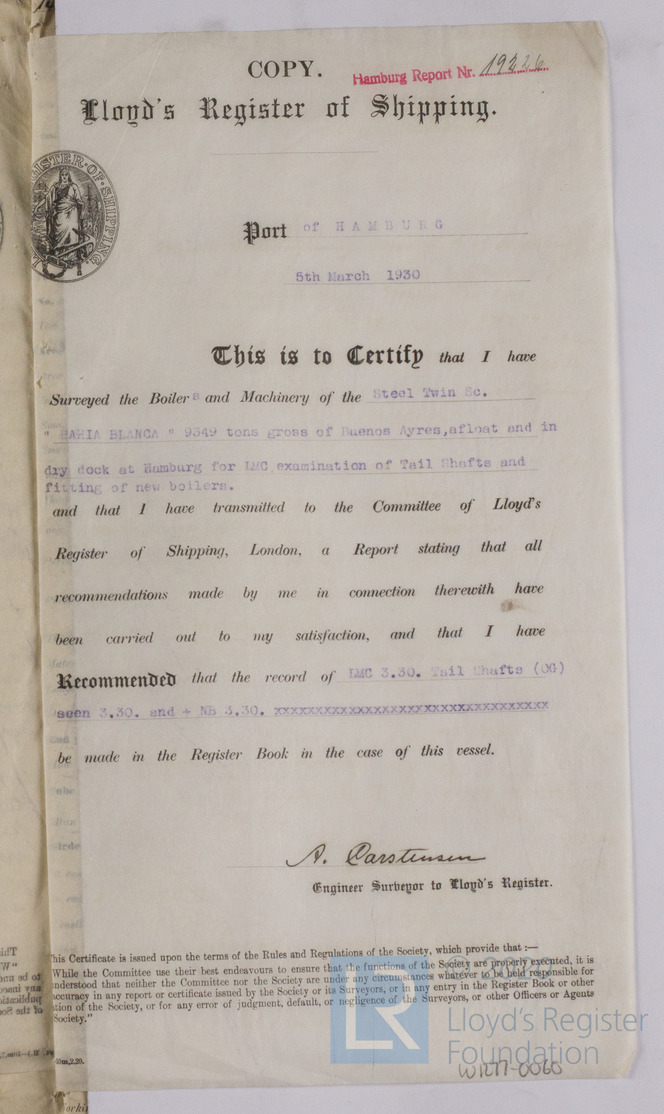 COPY.
Hamburg Report Nr. 19226
Lloyd's Register of Shipping.
LLOYD'S REGISTER·OF·SHIPPING
Port of HAMBURG
5th March 1930
This is to Certify that I have
Surveyed the Boilers and Machinery of the Steel Twin Sc.
" BAHIA BLANCA " 9349 tons gross of Buenos Ayres,afloat and in
dry dock at Hamburg for LMC examination of Tail Shafts and
fitting of new boilers.
and that I have transmitted to the Committee of Lloyd's
Register of Shipping, London, a Report stating that all
recommendations made by me in connection therewith have
been carried out to my satisfaction, and that I have
Recommended that the record of LMC 3.30. Tail Shafts (OG)
seen 3.30. and + NB 3.30. xxxxxxxxxxxxxxxxxxxxxxxxxxxxxxxxxx
be made in the Register Book in the case of this vessel.
A. Carstensen
Engineer Surveyor to Lloyd's Register.
his Certificate is issued upon the terms of the Rules and Regulations of the Society, which provide that :—
While the Committee use their best endeavours to ensure that the functions of the Society are properly executed, it is
nderstood that neither the Committee nor the Society are under any circumstances whatever to be held responsible for
ccuracy in any report or certificate issued by the Society or its Surveyors, or in any entry in the Register Book or other
tion of the Society, or for any error of judgment, default, or negligence of the Surveyors, or other Officers or Agents
Society."
LR
© 2020
Lloyd's Register
Foundation
W1277-0060